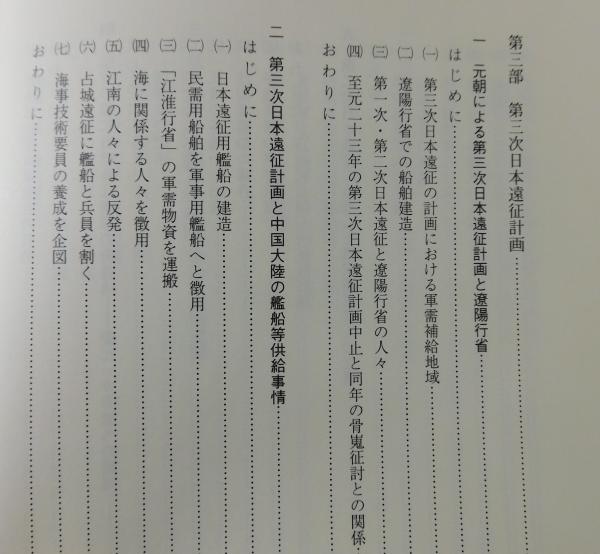 第三部　第三次日本遠征計画……………………………
一　元朝による第三次日本遠征計画と遼陽行省……………………………
はじめに……………………………
㈠　第三次日本遠征の計画における軍需補給地域……………………………
㈡　遼陽行省での船舶建造……………………………
㈢　第一次・第二次日本遠征と遼陽行省の人々……………………………
㈣　至元二十三年の第三次日本遠征計画中止と同年の骨嵬征討との関係
おわりに……………………………
二　第三次日本遠征計画と中国大陸の艦船等供給事情……………………………
はじめに……………………………
㈠　日本遠征用艦船の建造……………………………
㈡　民需用船舶を軍事用艦船へと徴用……………………………
㈢　「江淮行省」の軍需物資を運搬……………………………
㈣　海に関係する人々を徴用……………………………
㈤　江南の人々による反発……………………………
㈥　占城遠征に艦船と兵員を割く……………………………
㈦　海事技術要員の養成を企図……………………………
おわりに……………………………